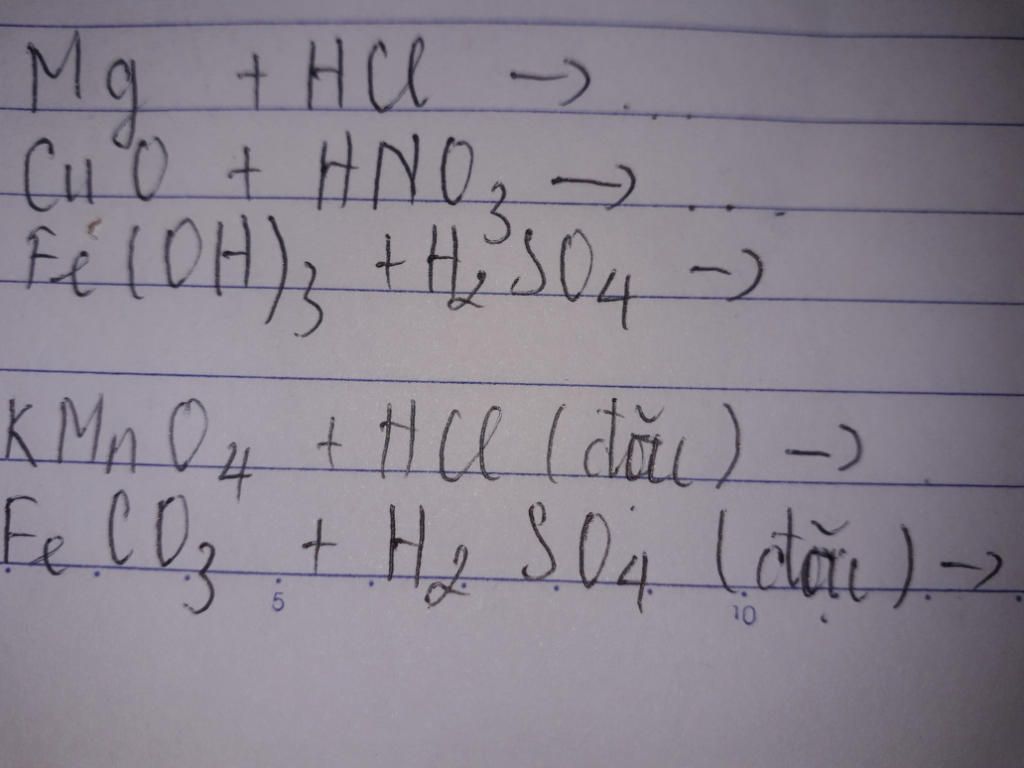 Mg + HCl → . . .
CuO + HNO₃ → . . .
Fe(OH)₃ + H₂SO₄ →
KMnO₄ + HCl (đặc) →
FeCO₃ + H₂SO₄ (đặc) →
5 10